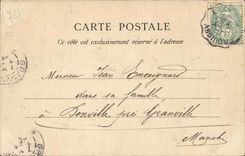 (76)
CARTE POSTALE
Ce côté est exclusivement réservé à l'adresse
Monsieur Jean Encoignard
dans sa famille
à Donville, près Granville
Manche